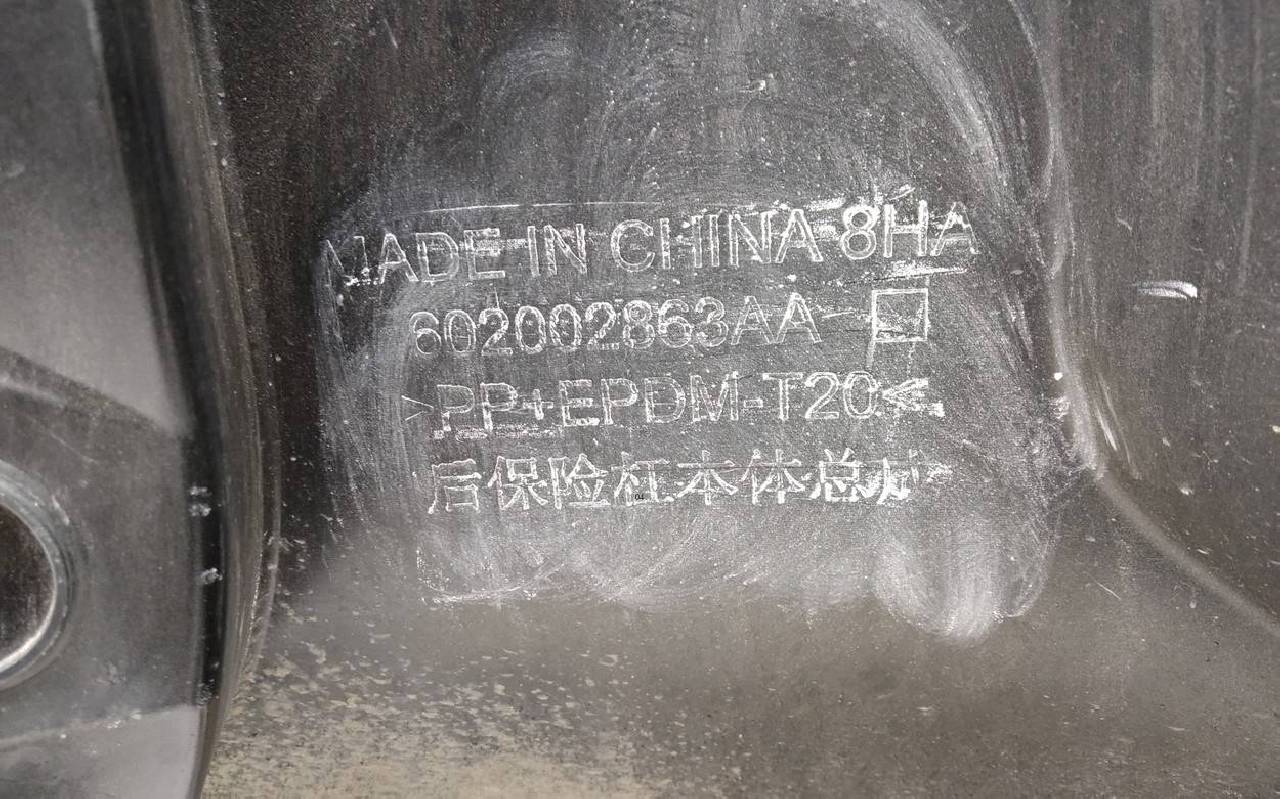 MADE IN CHINA 8HA
602002863AA
>PP+EPDM-T20<
后保险杠本体总成